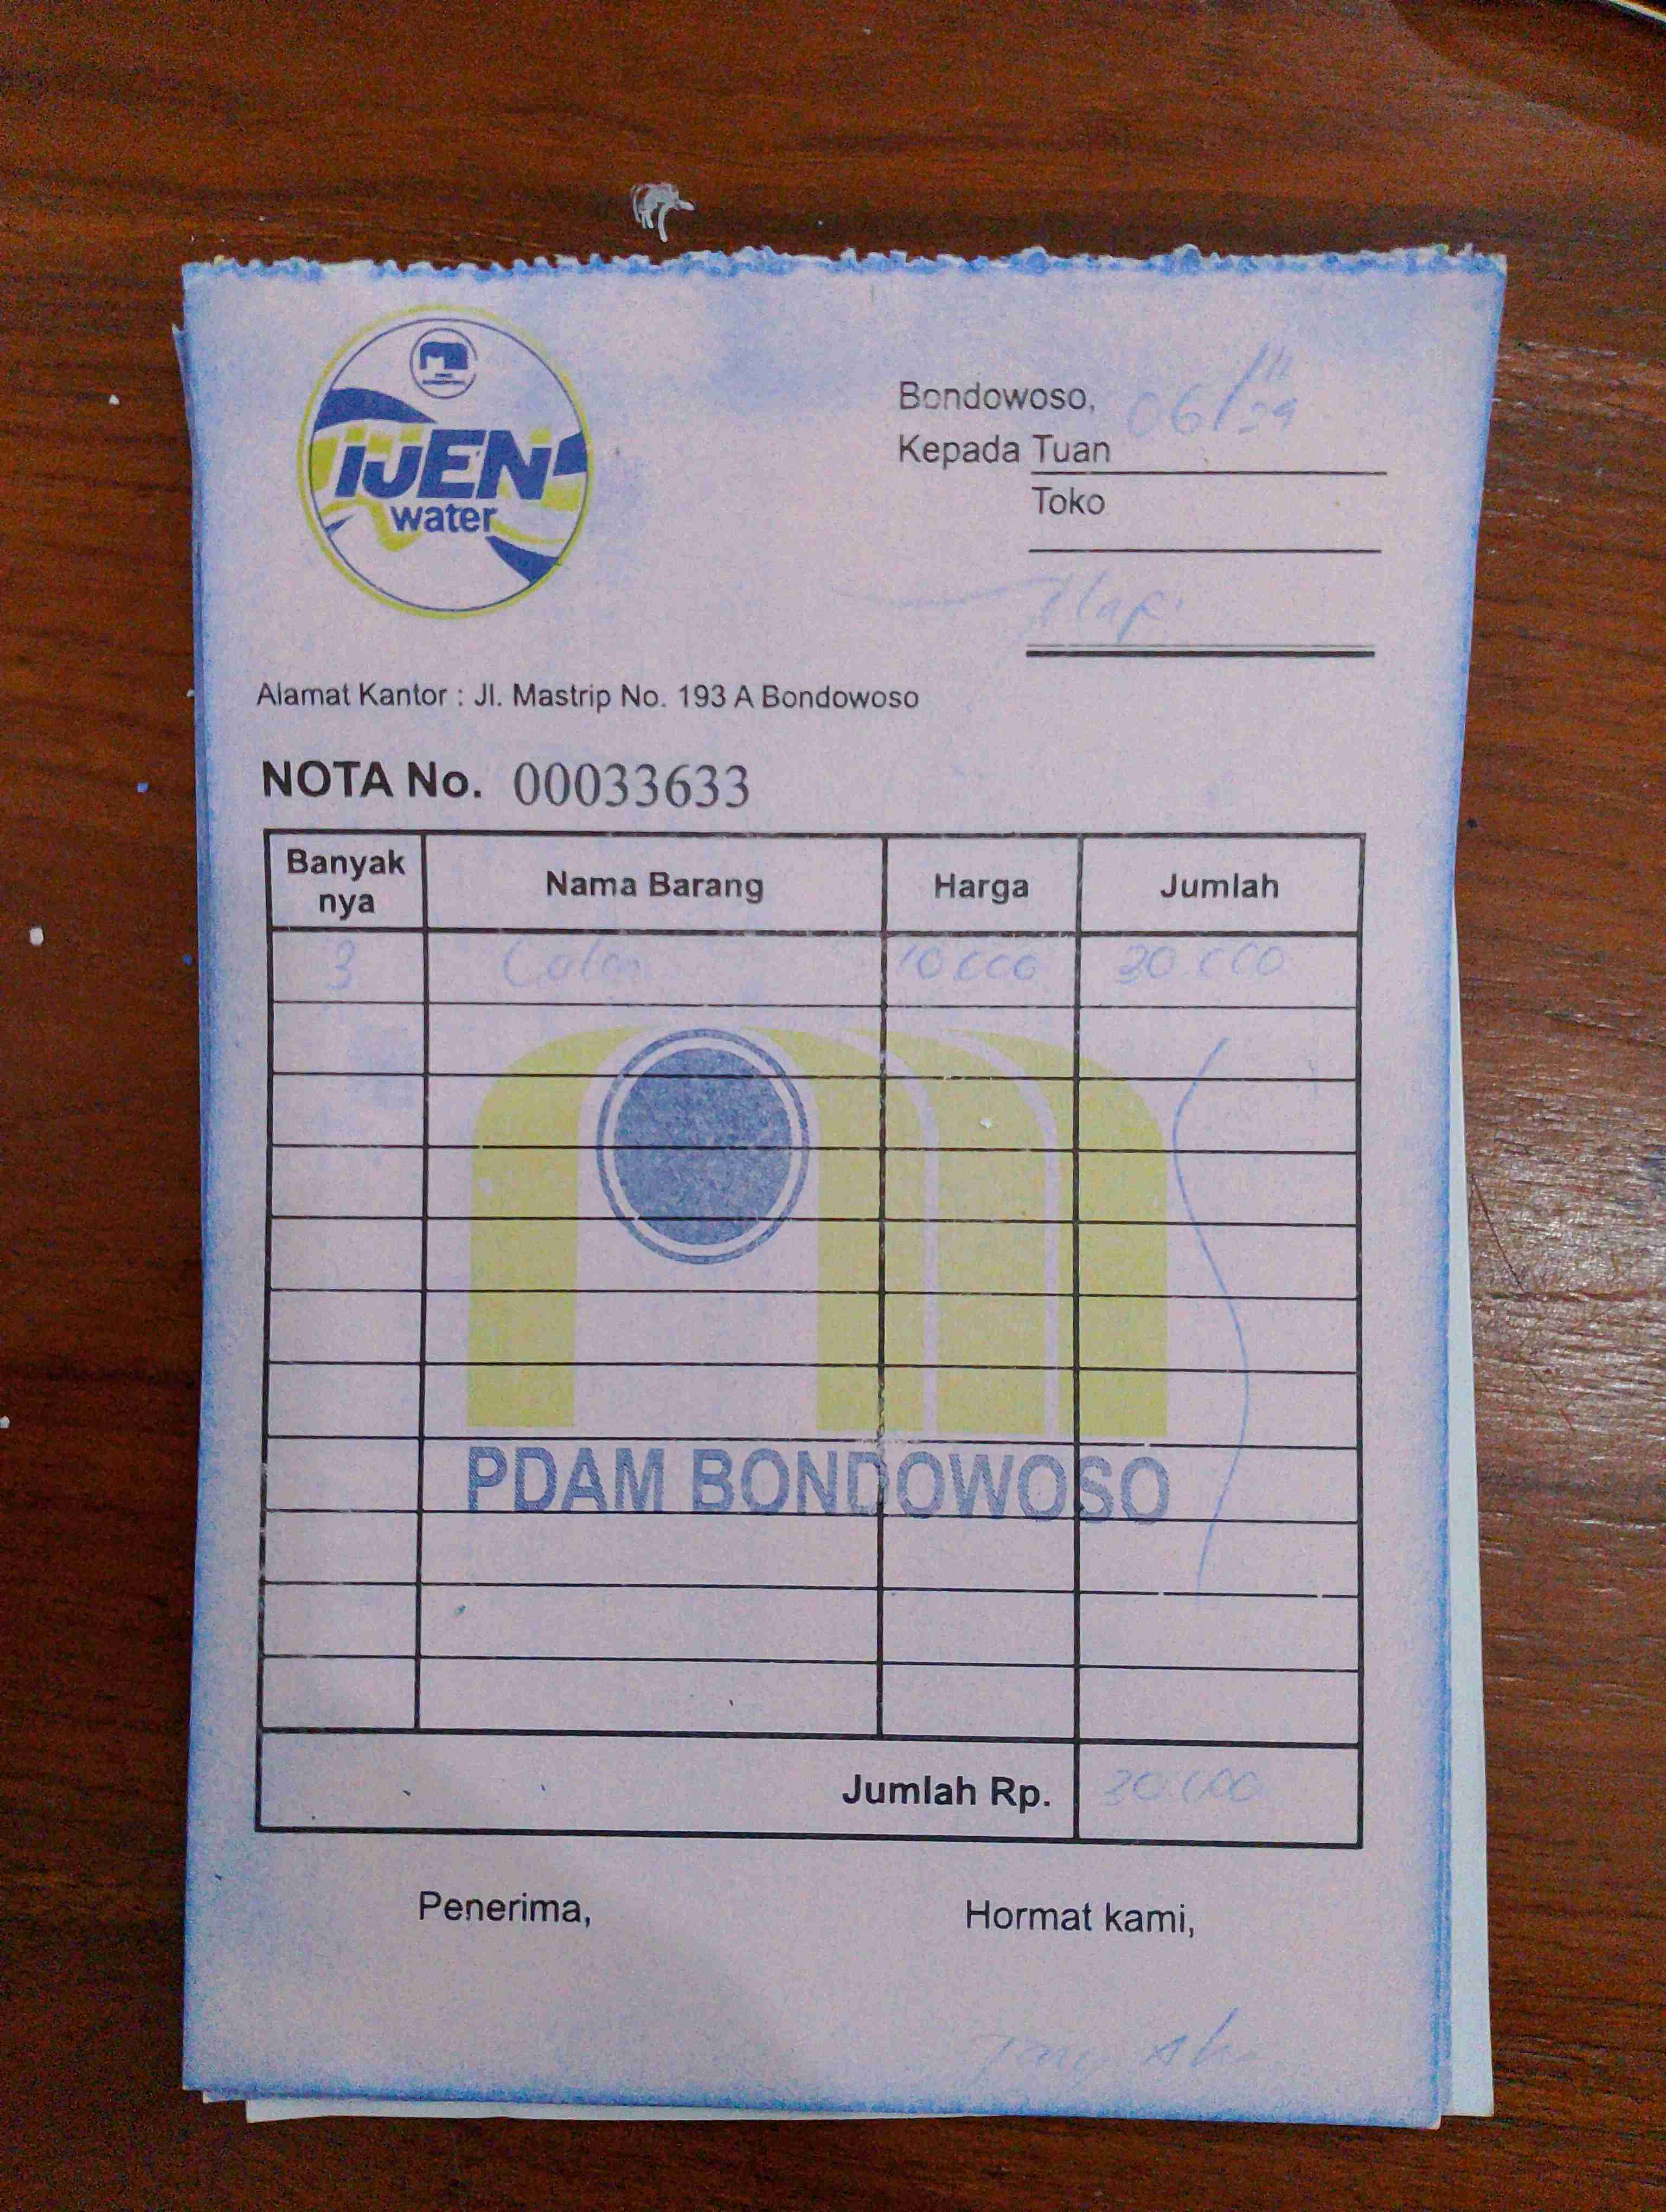 IJEN
water
Bondowoso, 06/11/24
Kepada Tuan
Toko
Alamat Kantor : Jl. Mastrip No. 193 A Bondowoso
NOTA No. 00033633
Banyak nya Nama Barang Harga Jumlah
3 10.000 30.000
PDAM BONDOWOSO
Jumlah Rp. 30.000
Penerima, Hormat kami,